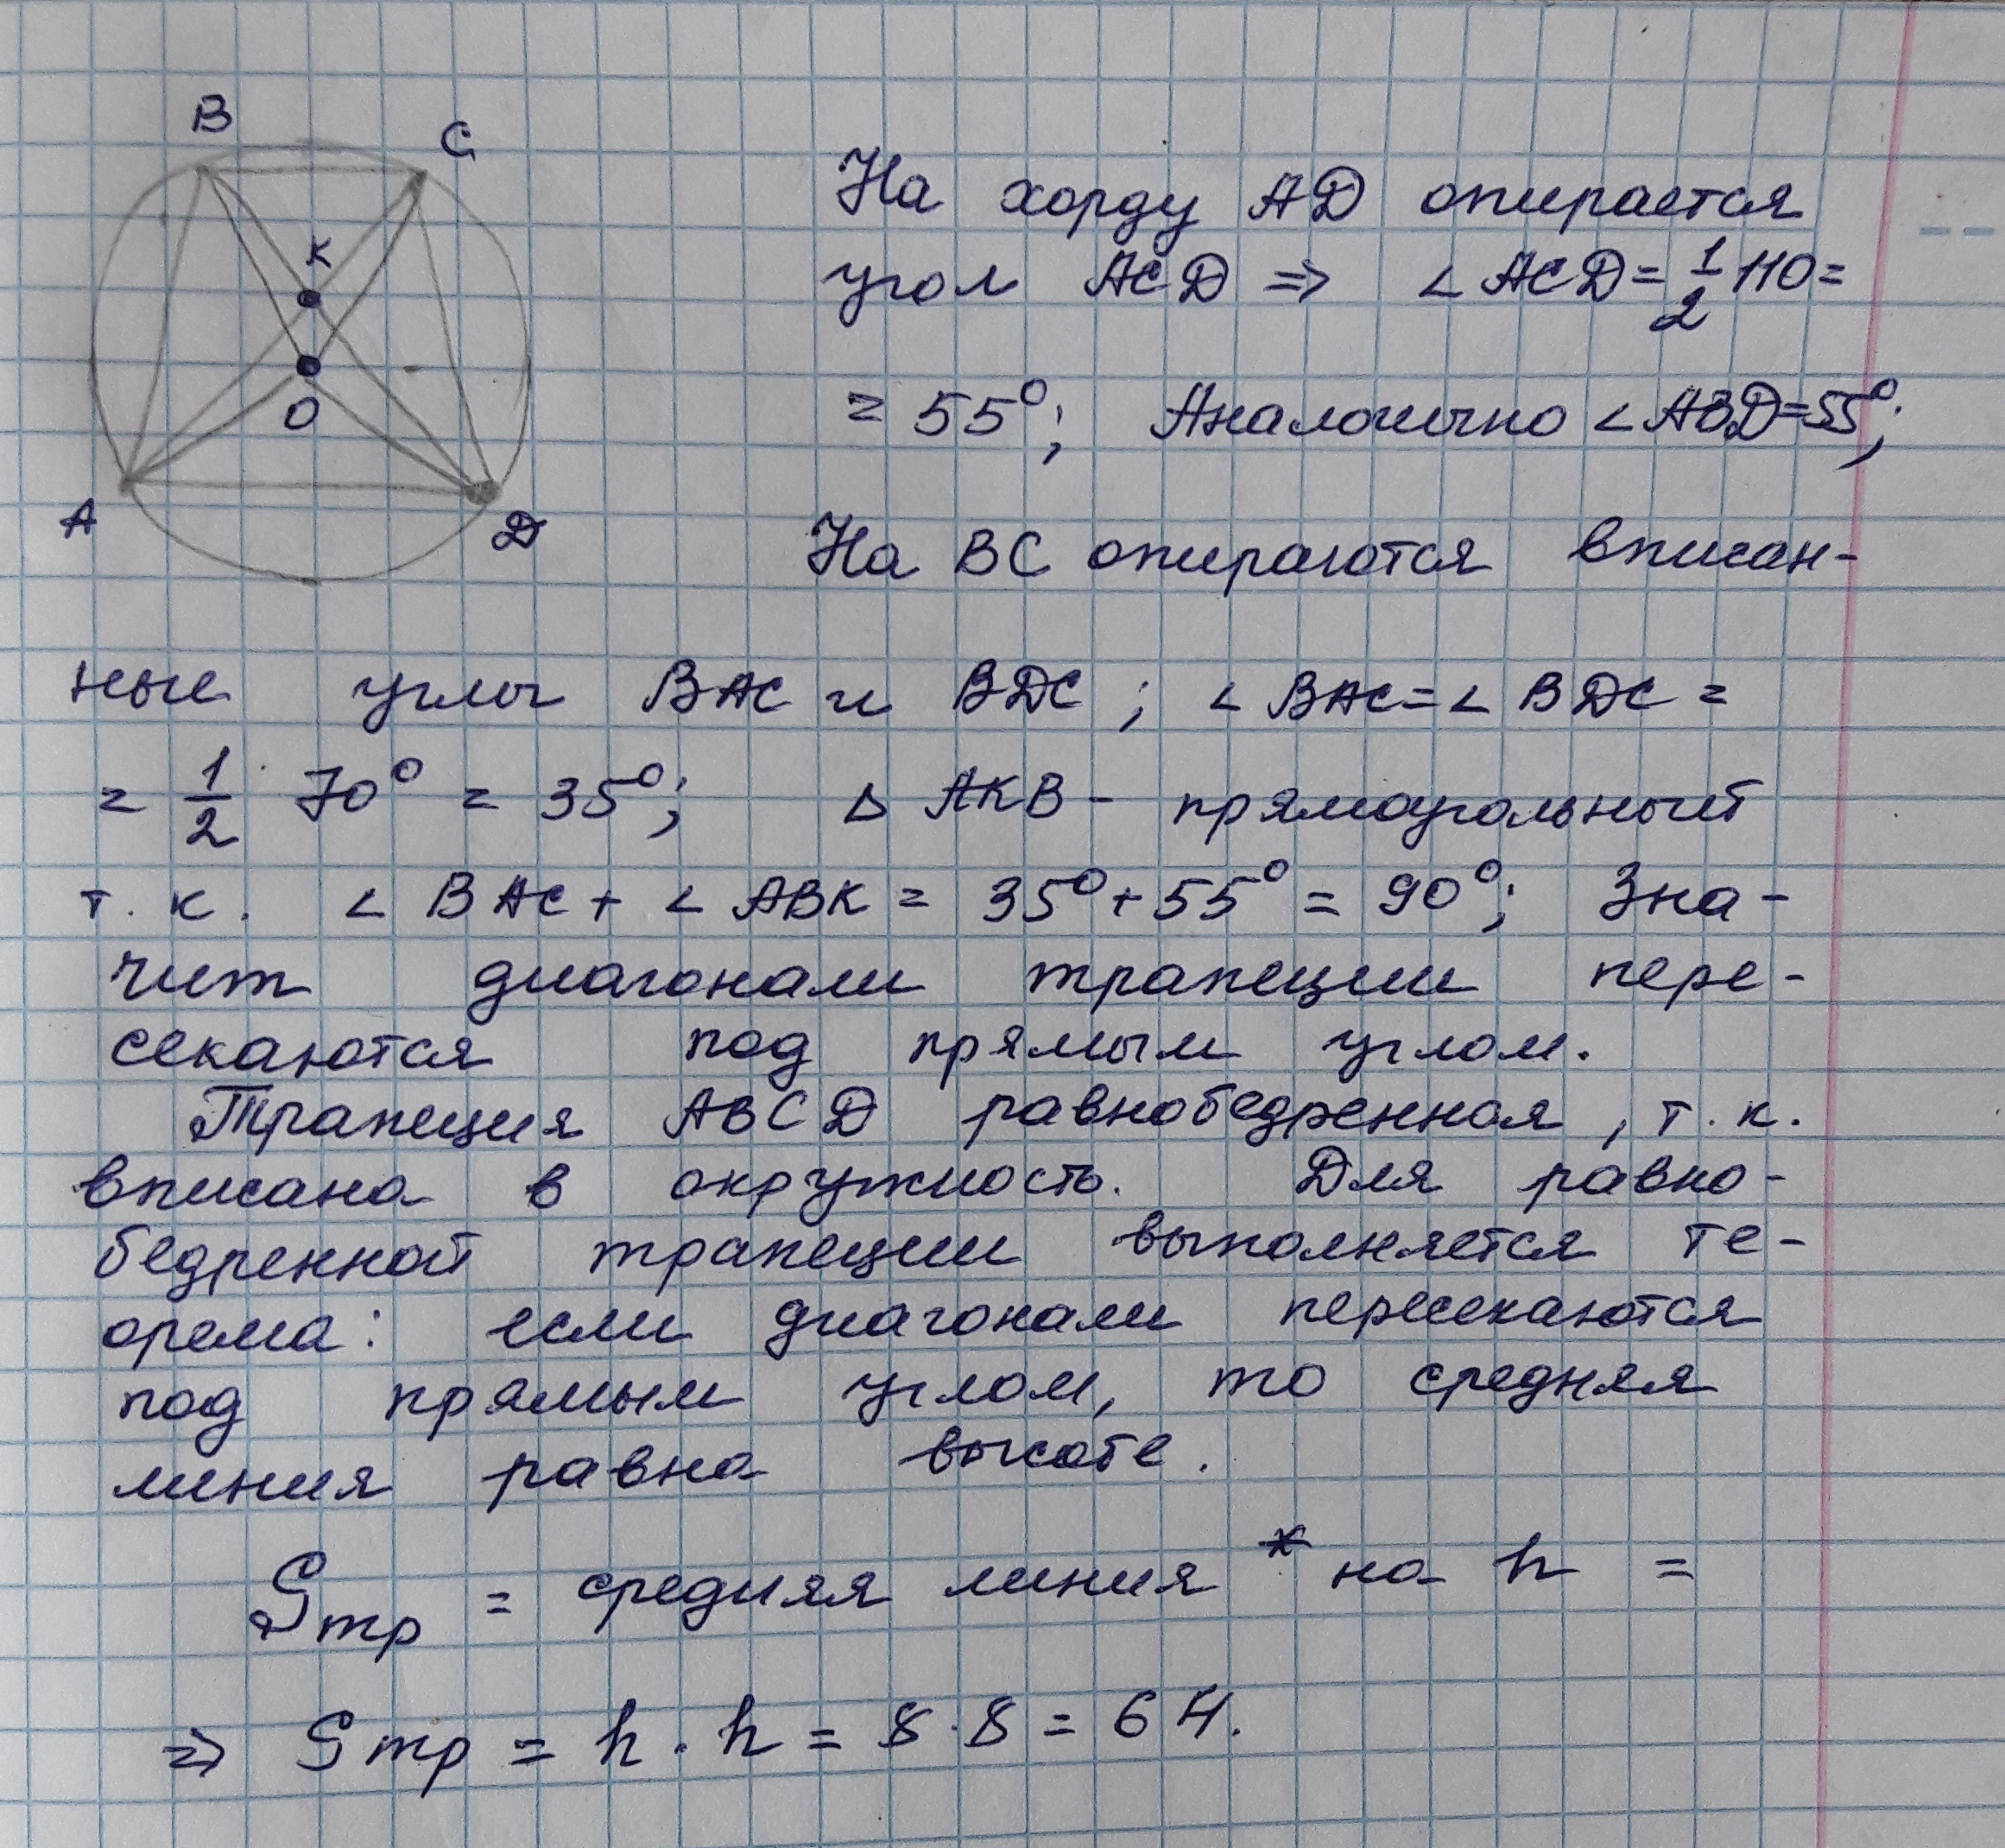 B
C
K
O
A
D
На хорду AD опирается
угол ACD => ∠ ACD = 1/2 110 =
= 55°; Аналогично ∠ ABD = 55°;
На BC опираются вписан-
ные углы BAC и BDC; ∠ BAC = ∠ BDC =
= 1/2 · 70° = 35°; Δ AKB - прямоугольный
т. к. ∠ BAC + ∠ ABK = 35° + 55° = 90°; Зна-
чит диагонали трапеции пере-
секаются под прямым углом.
Трапеция ABCD равнобедренная, т. к.
вписана в окружность. Для равно-
бедренной трапеции выполняется те-
орема: если диагонали пересекаются
под прямым углом, то средняя
линия равна высоте.
Sтр = средняя линия * на h =
=> Sтр = h · h = 8 · 8 = 64.